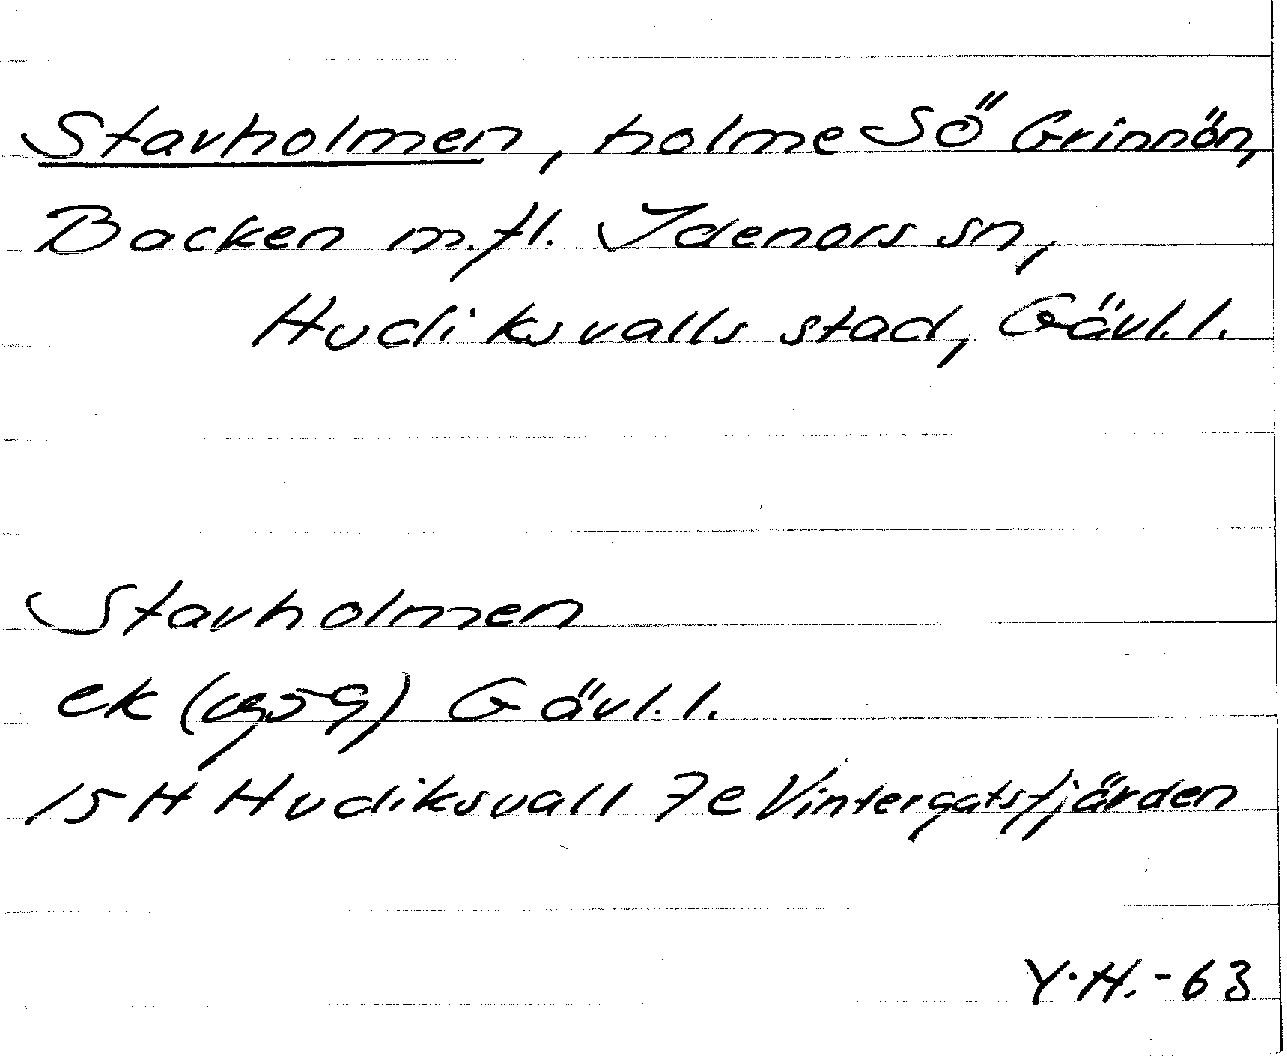 Stavholmen, holme SÖ Grinnön,
Backen m.fl. Idenors sn,
Hudiksvalls stad, Gävl.l.
Stavholmen
ek (1959) Gävl.l.
15H Hudiksvall 7e Vintergatsfjärden
Y.H.-63